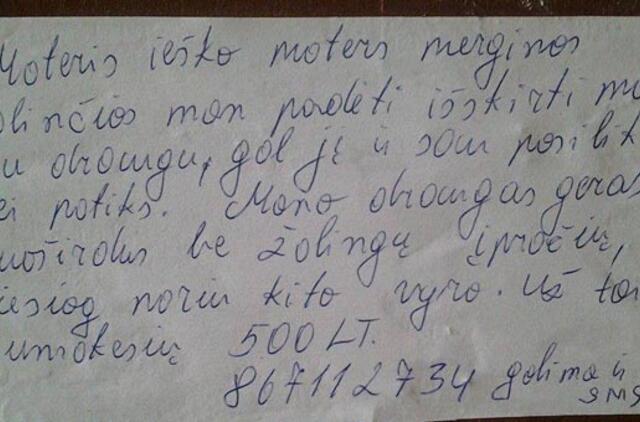 Moteris ieško moters merginos
olinčios man padėti išskirti m
u draugu, gal ję ir sau pasilik
ei patiks. Mano draugas geras
uoširdus be žalingų įpročių,
iesiog noriu kito vyro. Už tai
umokesių 500 LT.
867112734 galima ir
SMS